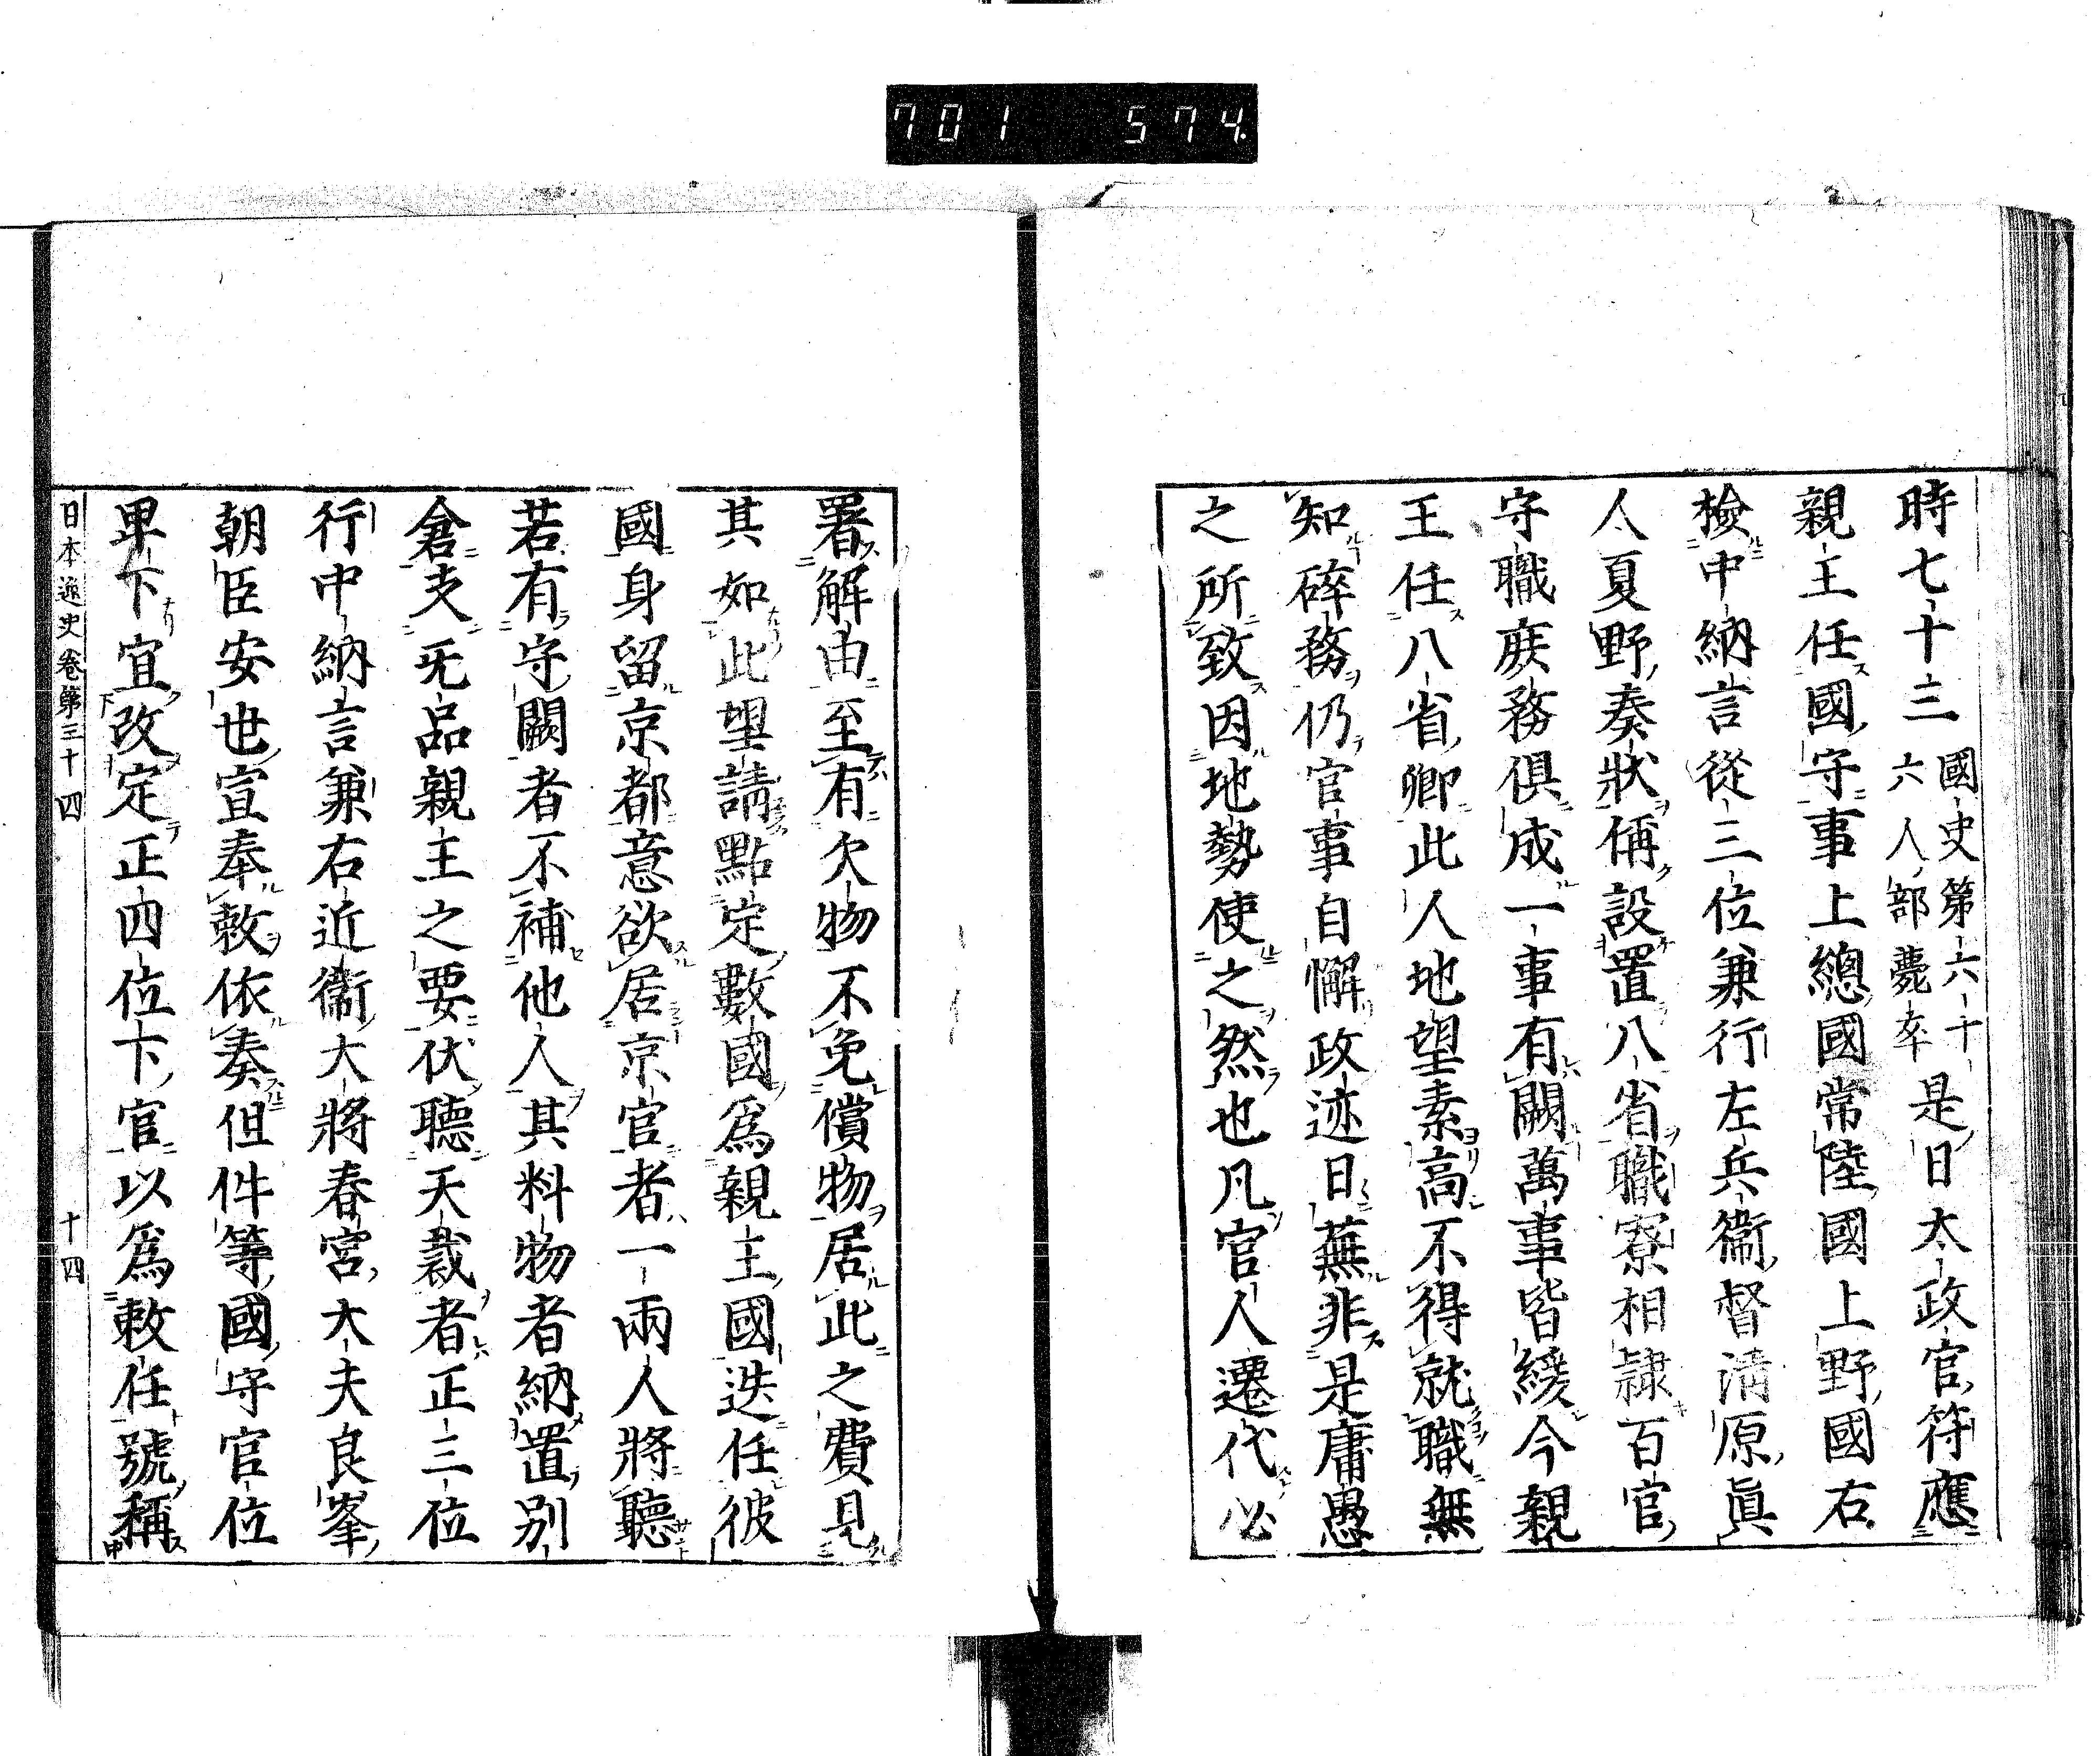 701 574
時七十三國史第六十六人部薨卒是日太政官符應
親王任國守事上總國常陸國上野國右
檢中納言從三位兼行左兵衞督淸原眞
人夏野奏狀偁設置八省職寮相隷百官
守職庶務俱成一事有闕萬事皆緩今親
王任八省卿此人地望素高不得就職無
知碎務仍官事自懈政迹日蕪非是庸愚
之所致因地勢使之然也凡官人遷代必
署解由至有欠物不免償物居此之費見
其如此望請點定數國爲親王國迭任彼
國身留京都意欲居京官者一兩人將聽
若有守闕者不補他人其料物者納置別
倉支无品親王之要伏聽天裁者正三位
行中納言兼右近衞大將春宮大夫良峯
朝臣安世宣奉敕依奏但件等國守官位
卑下宜改定正四位下官以爲敕任號稱
日本逸史卷第三十四 十四